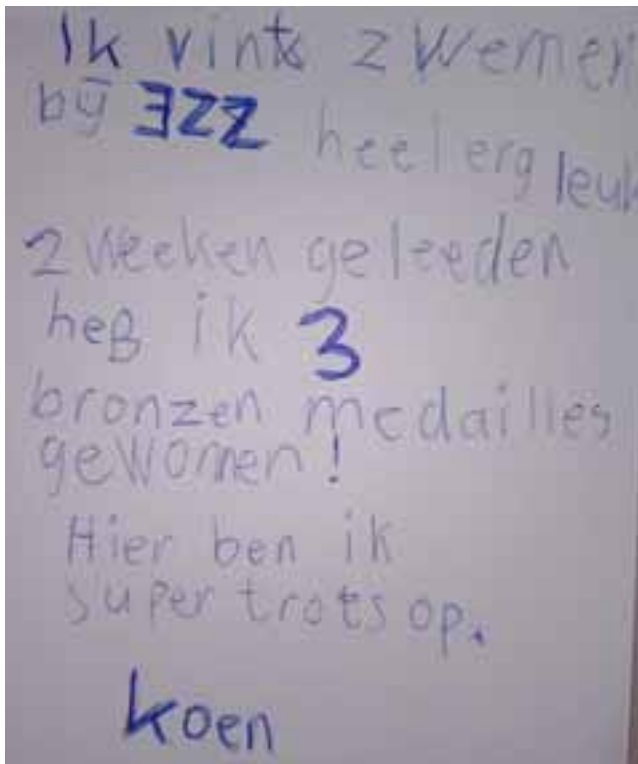 Ik vints zwemen
bij EZZ heel erg leuk
2 weeken geleeden
heB ik 3
bronzen medailles
gewonen!
Hier ben ik
super trots op.
koen